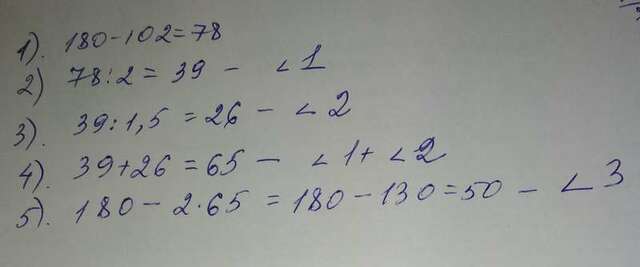 1). 180-102=78
2) 78:2 = 39 - ∠1
3). 39:1,5 = 26 - ∠2
4). 39+26 = 65 - ∠1+ ∠2
5). 180- 2·65 = 180-130=50 - ∠3